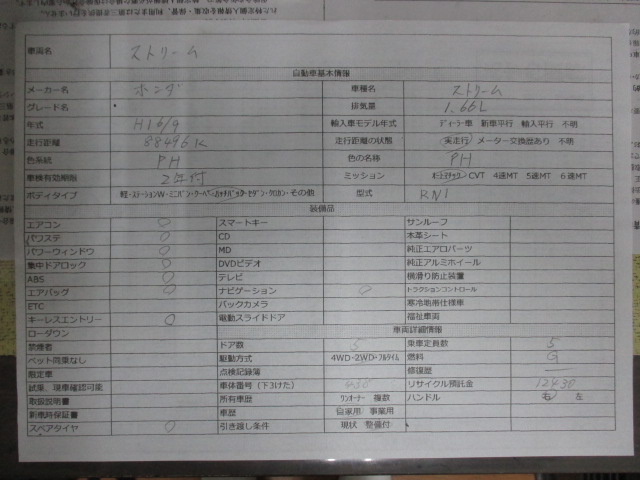 車両名 ストリーム
自動車基本情報
メーカー名 ホンダ 車種名 ストリーム
グレード名 排気量 1.66L
年式 H16/9 輸入車モデル年式 ディーラー車 新車平行 輸入平行 不明
走行距離 88496K 走行距離の状態 実走行 メーター交換歴あり 不明
色系統 PH 色の名称 PH
車検有効期限 2年付 ミッション オートマチック CVT 4速MT 5速MT 6速MT
ボディタイプ 軽・ステーションW・ミニバン・クーペ・ハッチバック・セダン・クロカン・その他 型式 RN1
装備品
エアコン ○ スマートキー サンルーフ
パワステ ○ CD 本革シート
パワーウィンドウ ○ MD 純正エアロパーツ
集中ドアロック ○ DVDビデオ 純正アルミホイール
ABS ○ テレビ 横滑り防止装置
エアバッグ ○ ナビゲーション ○ トラクションコントロール
ETC バックカメラ 寒冷地帯仕様車
キーレスエントリー ○ 電動スライドドア 福祉車両
ローダウン 車両詳細情報
禁煙者 ドア数 5 乗車定員数 5
ペット同乗なし 駆動方式 4WD・2WD・フルタイム 燃料 G
限定車 点検記録簿 修復歴 —
試乗、現車確認可能 車体番号(下3けた) 438 リサイクル預託金 12430
取扱説明書 所有車歴 ワンオーナー 複数 ハンドル 右 左
新車時保証書 車歴 自家用 事業用
スペアタイヤ ○ 引き渡し条件 現状 整備付